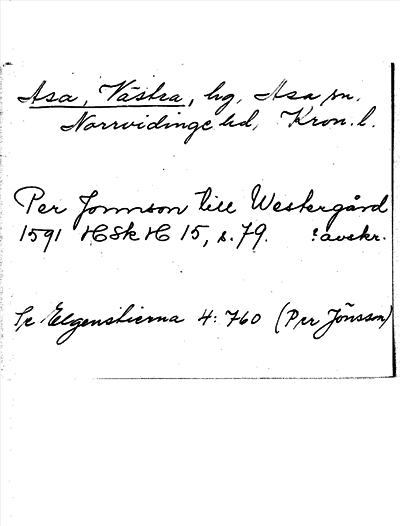 Asa, Västra, hg, Asa sn.
Norrvidinge hd, Kron. l.
Per Jonnson till Westergård
1591 HSkH 15, s. 79. : avskr.
Se Elgenstierna 4: 760 (Per Jönsson)